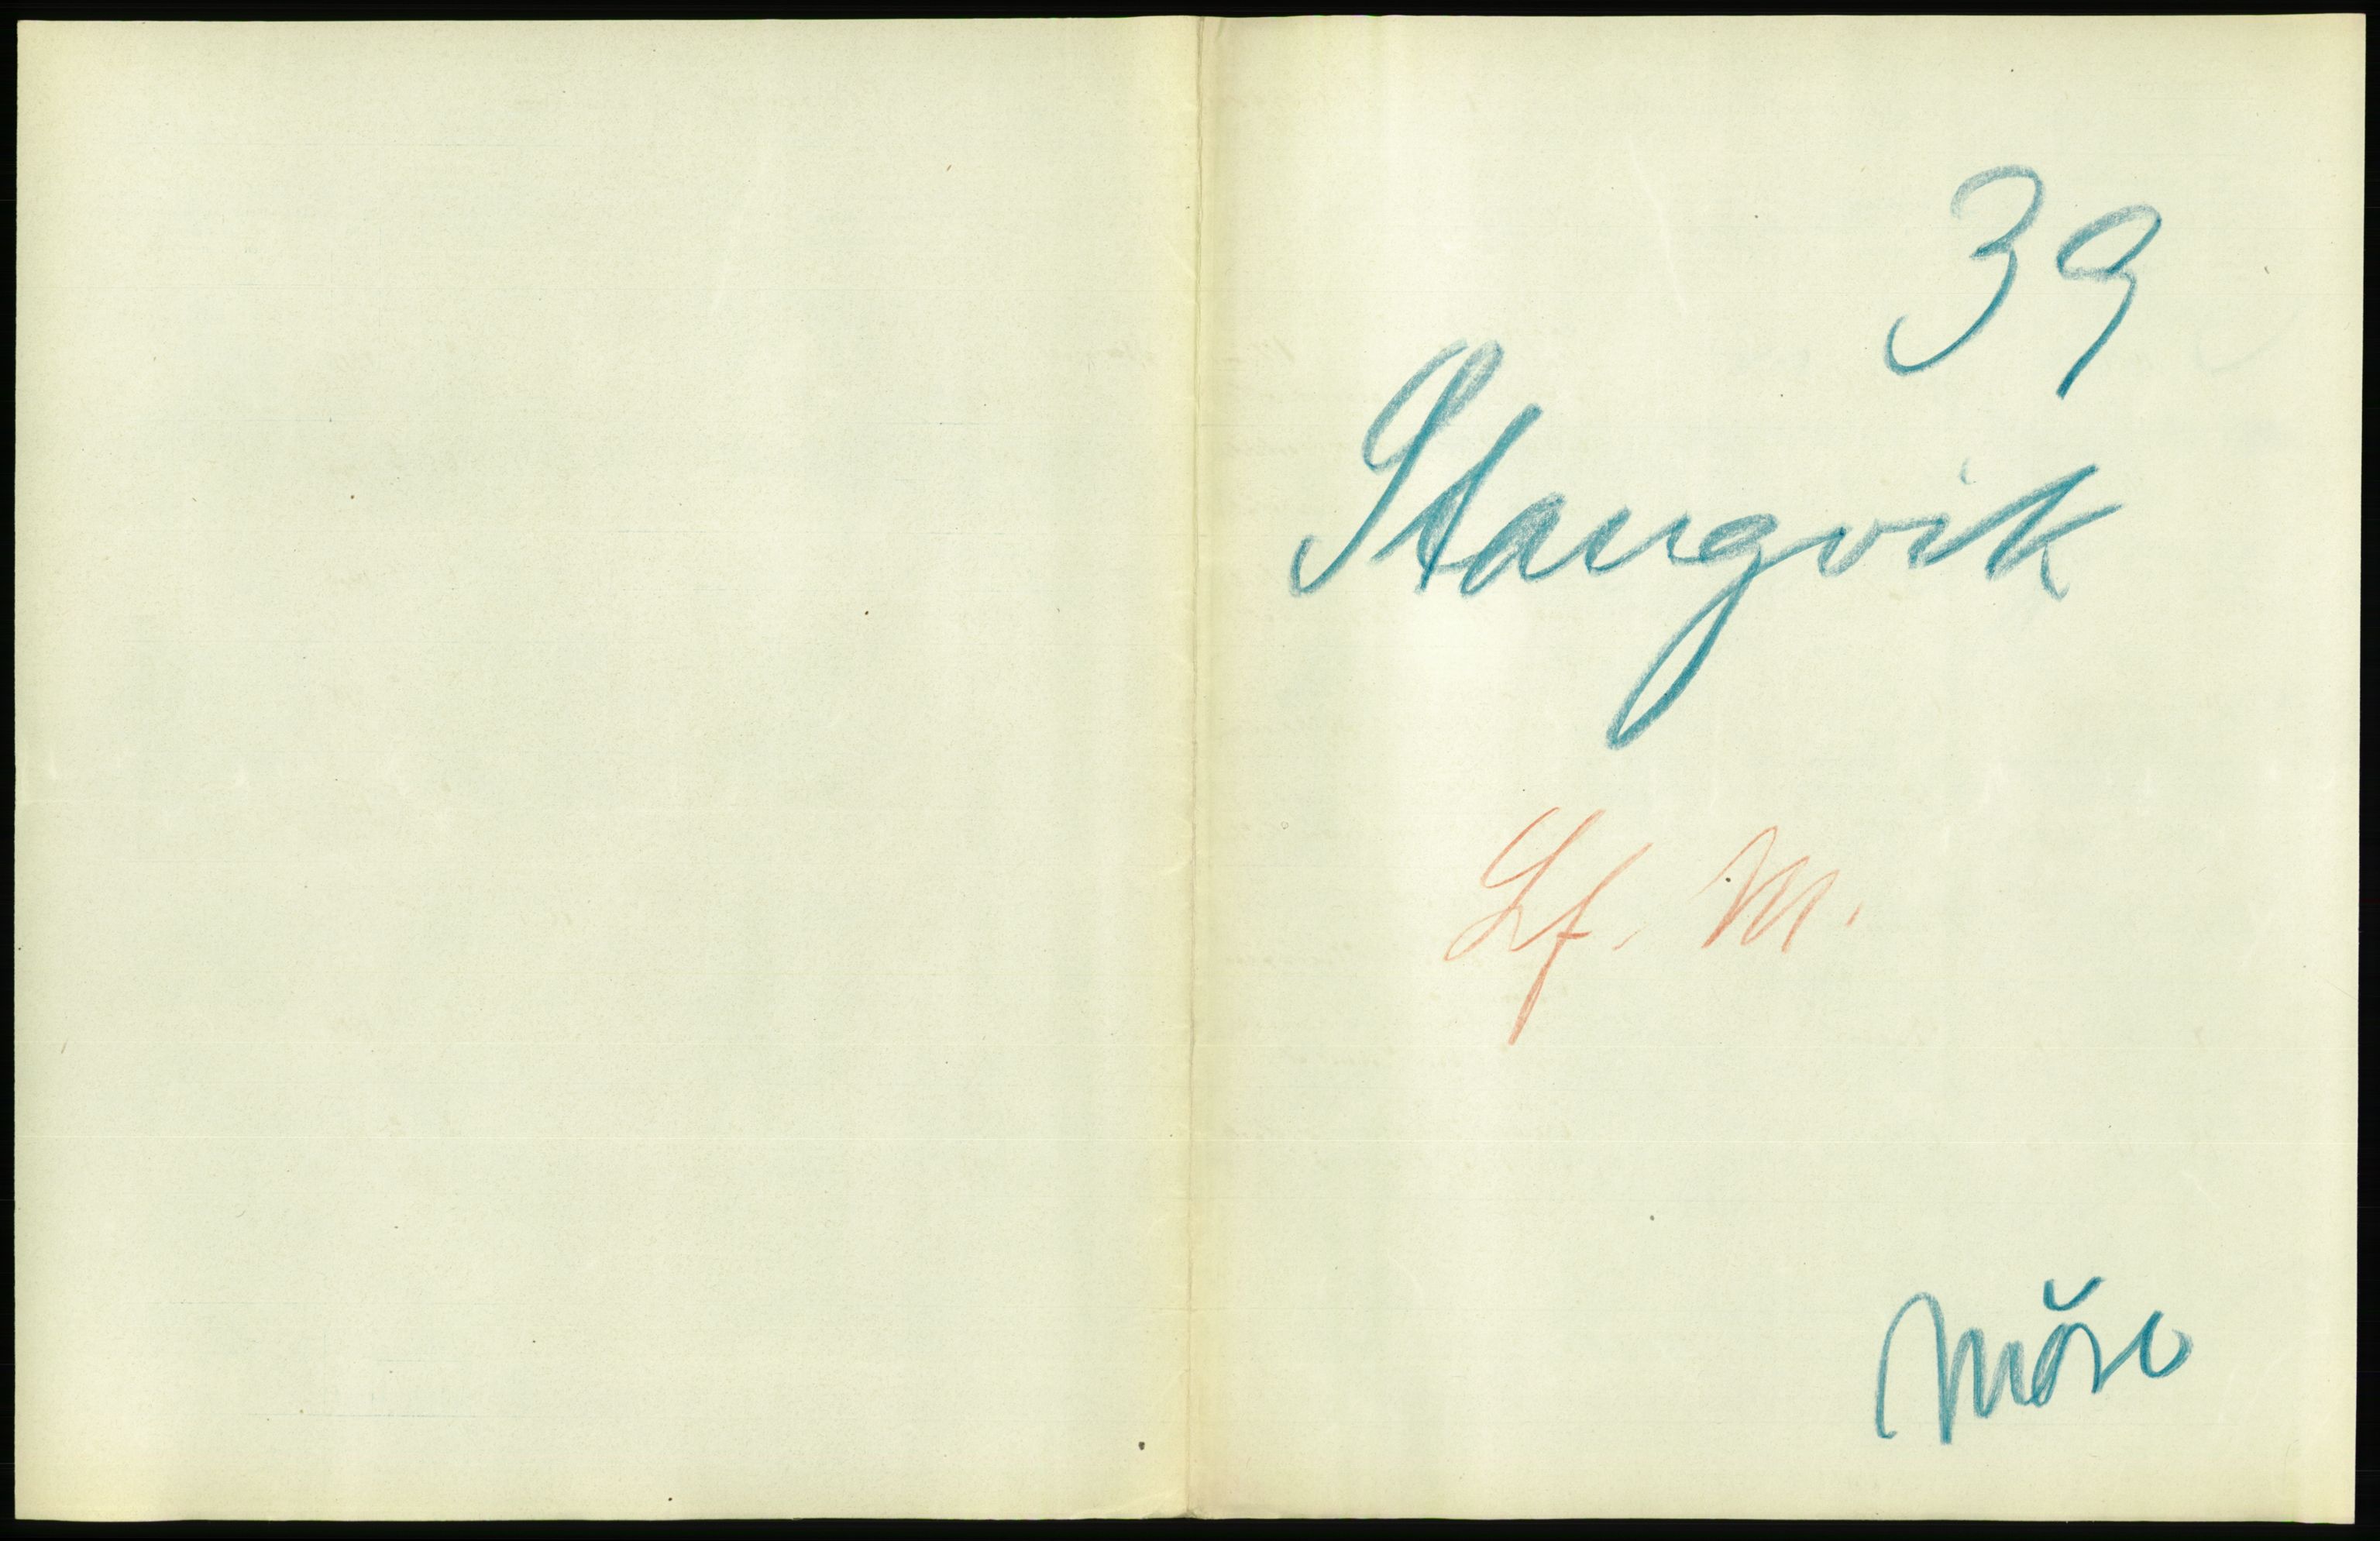 39
Stangvik
Lf. M.
Möre